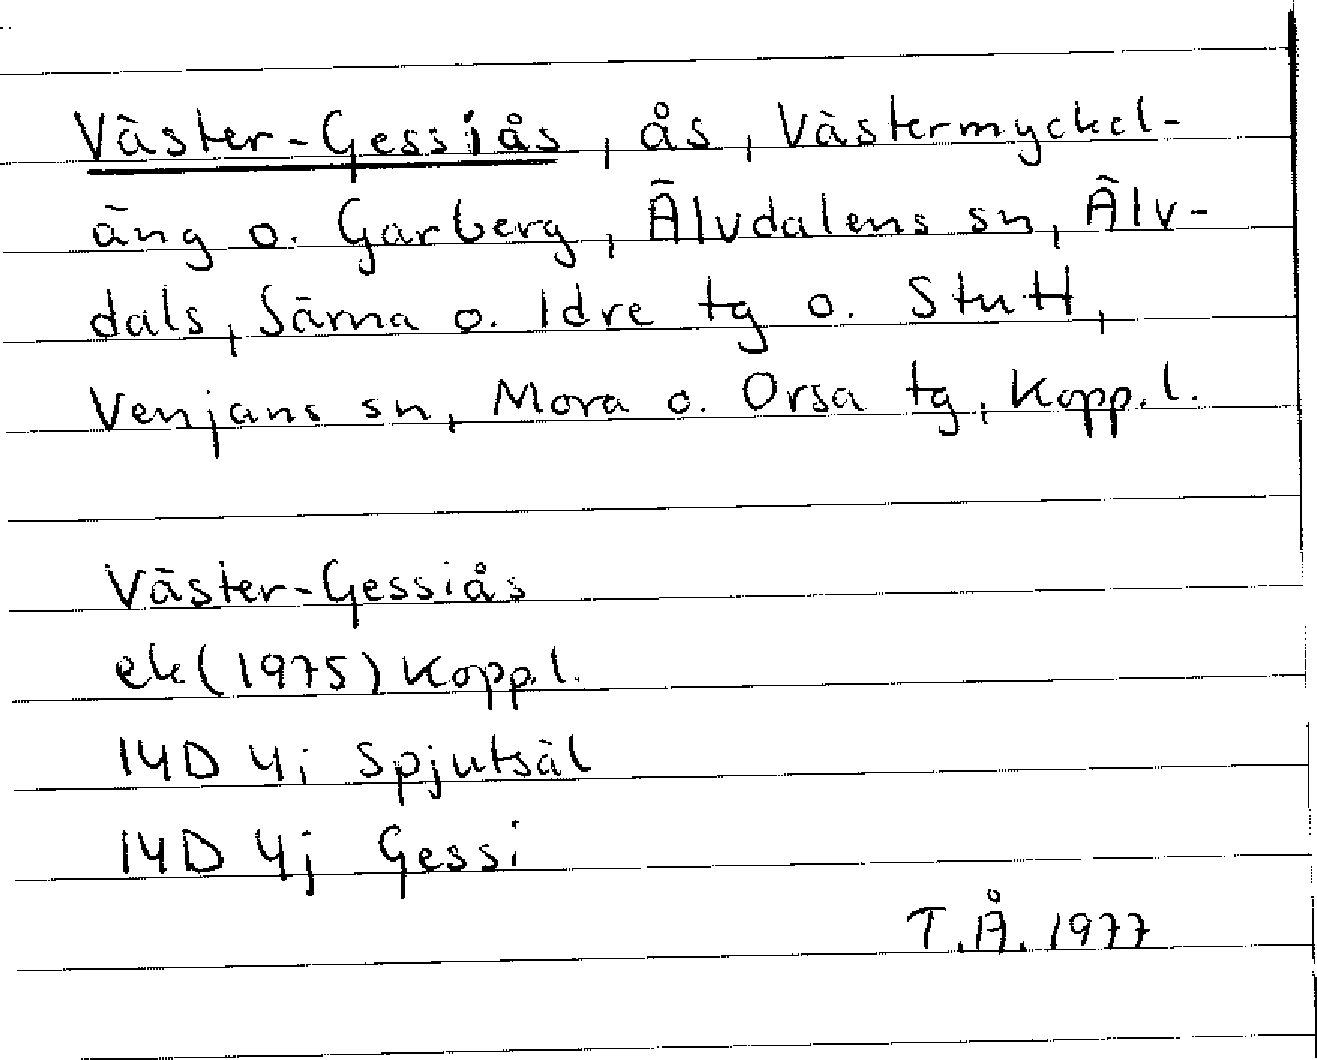 Väster-Gessiås, ås, Västermyckel-
äng o. Garberg, Älvdalens sn, Älv-
dals, Särna o. Idre tg o. Stutt,
Venjans sn, Mora o. Orsa tg, Kopp.l.
Väster-Gessiås
ek(1975) Kopp.l.
14D 4i Spjutsäl
14D 4j Gessi
T.Å. 1977